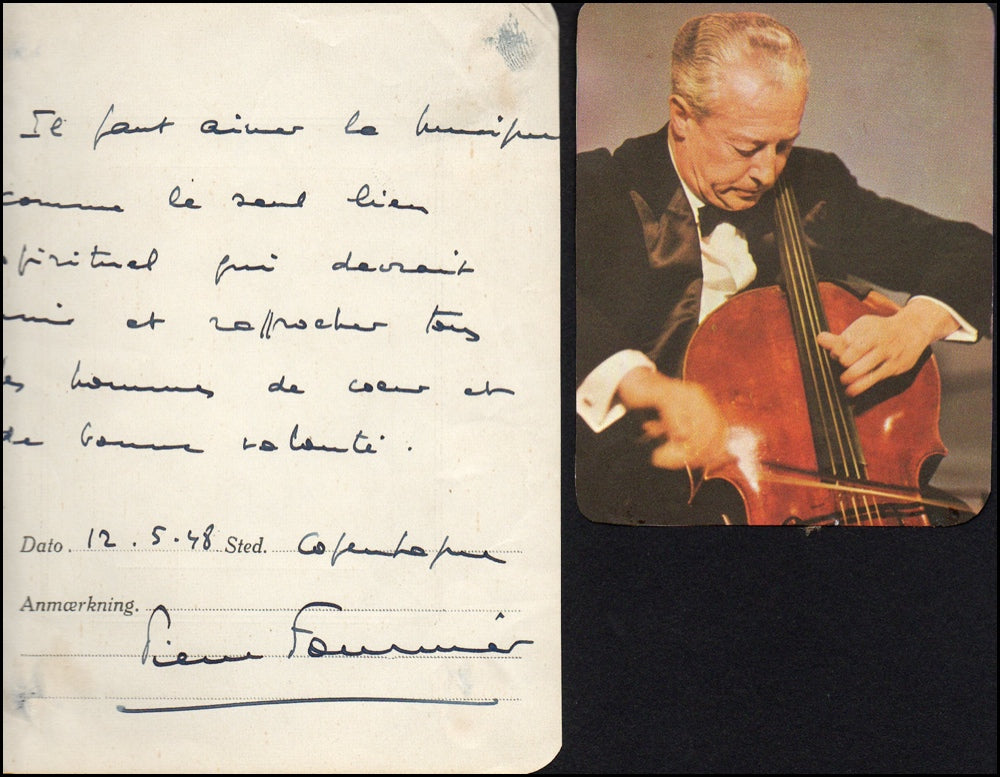 Il faut aimer la musique
comme le seul lien
spirituel qui devrait
unir et rapprocher tous
les hommes de coeur et
de bonne volonté.
Dato. 12.5.48 Sted. Copenhague
Anmærkning.
Pierre Fournier